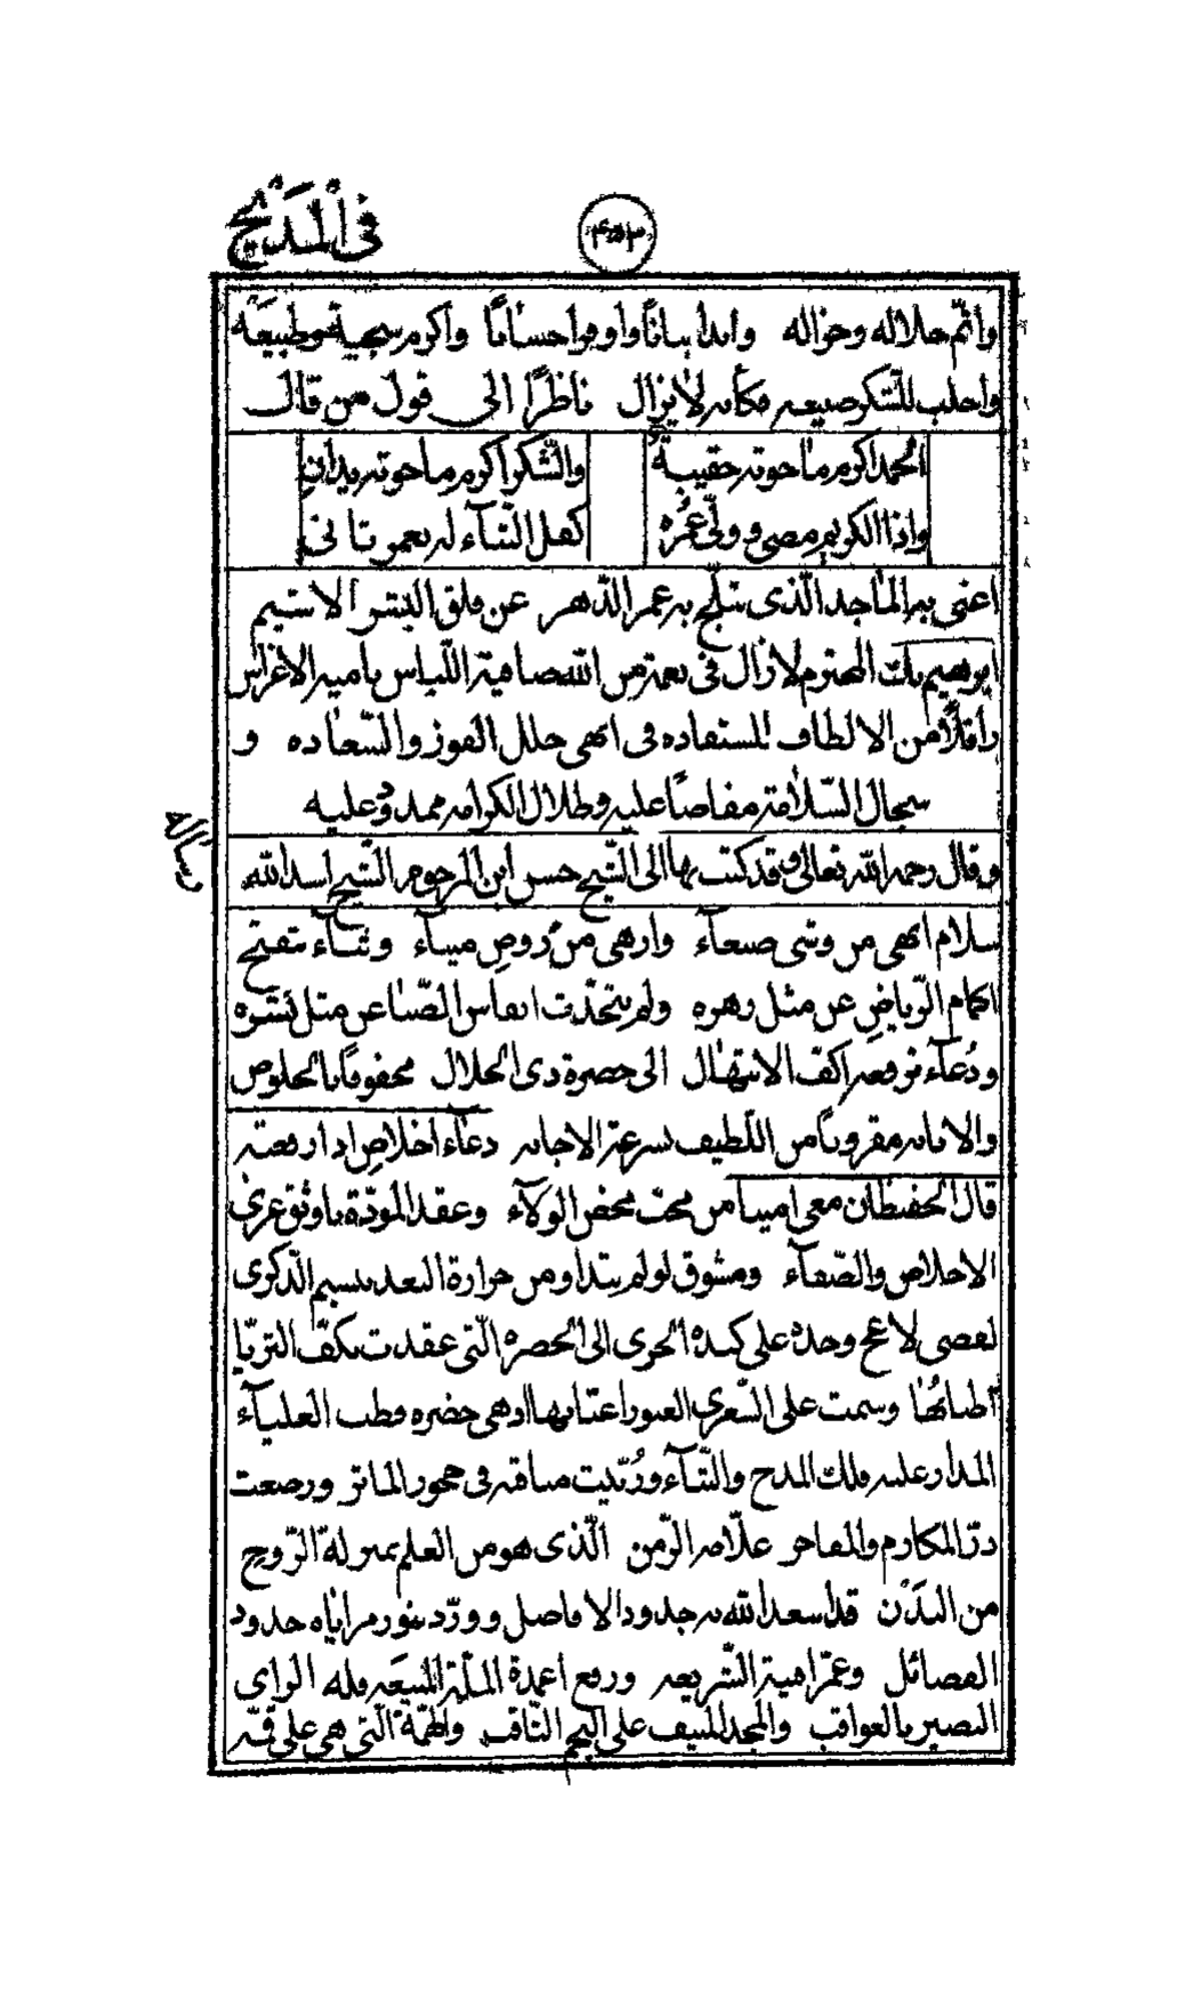 في المديح
۴۵۳
وأتمّ جلاله وجزاله وابدا بيانًا واوفر احسانًا واكرم سجية وطبيعة
واجلب للشكر صنيعه فكأنه لا يزال ناظرًا الى قول من قال
الحمد اكرم ما حوته حقيبة والشكر اكرم ما حوته يدان
واذا الكريم مضى وولّى عمره كفل الثناء له بعمر ثاني
اعنى به الماجد الّذى تبلّج به عمر الدّهر عن فلق البشر الاشيم
ابرهيم بك المحترم لا زال في نعمة من الله ضافية اللّباس نامية الاغراس
رافلًا من الالطاف المستفاده فى ابهى حلل الفوز والسّعاده و
سجال السّلامة مفاضًا عليه وظلال الكرامه ممدودٌ عليه
رسالة
وقال رحمه الله تعالى وقد كتب بها الى الشّيخ حسن ابن المرحوم الشّيخ اسد الله
سلام ابهى من وشى صنعآء وازهى من روضٍ ميثآء وثنآء تتفتح
اكمام الرّياضِ عن مثل زهره ولم يتحدّث انفاس الصّبا عن مثل نشره
ودُعآء نرفعه اكف الابتهال الى حضرة ذى الجلال محفوفًا بالخلوص
والانابه مقرونًا من اللّطيف بسرعة الاجابه دعآء اخلاصٍ اذا رفعته
قال الحفيظان معى امينا من محبّ محض الولآء وعقد المودّة باوثق عرى
الاخلاص والصّفآء ومشوق لو لم يتداو من حرارة البعد بنسيم الذكرى
لقضى لاعج وجده على كبده الحرى الى الحضره الّتى عقدت بكفّ الثريّا
اطنابُها وسمت على الشّعرى العبور اعتابها الا وهى حضره قطب العليآء
المدار عليه فلك المدح والثنآء ورُبّيت مناقبه فى حجور المآثر ورضعت
درّ المكارم والمفاخر علّامه الزّمن الّذى هو من العلم بمنزلة الرّوح
من البَدَن قد اسعد الله به جدود الافاضل وورّد بنور مراياه خدود
الفضائل وعمّر ابنية الشّريعه ورفع اعمدة الملّة المنيعَه فله الراى
البصير بالعواقب والمجد المنيف على النجم الثّاقب والهمّة الّتى هى على قمّة